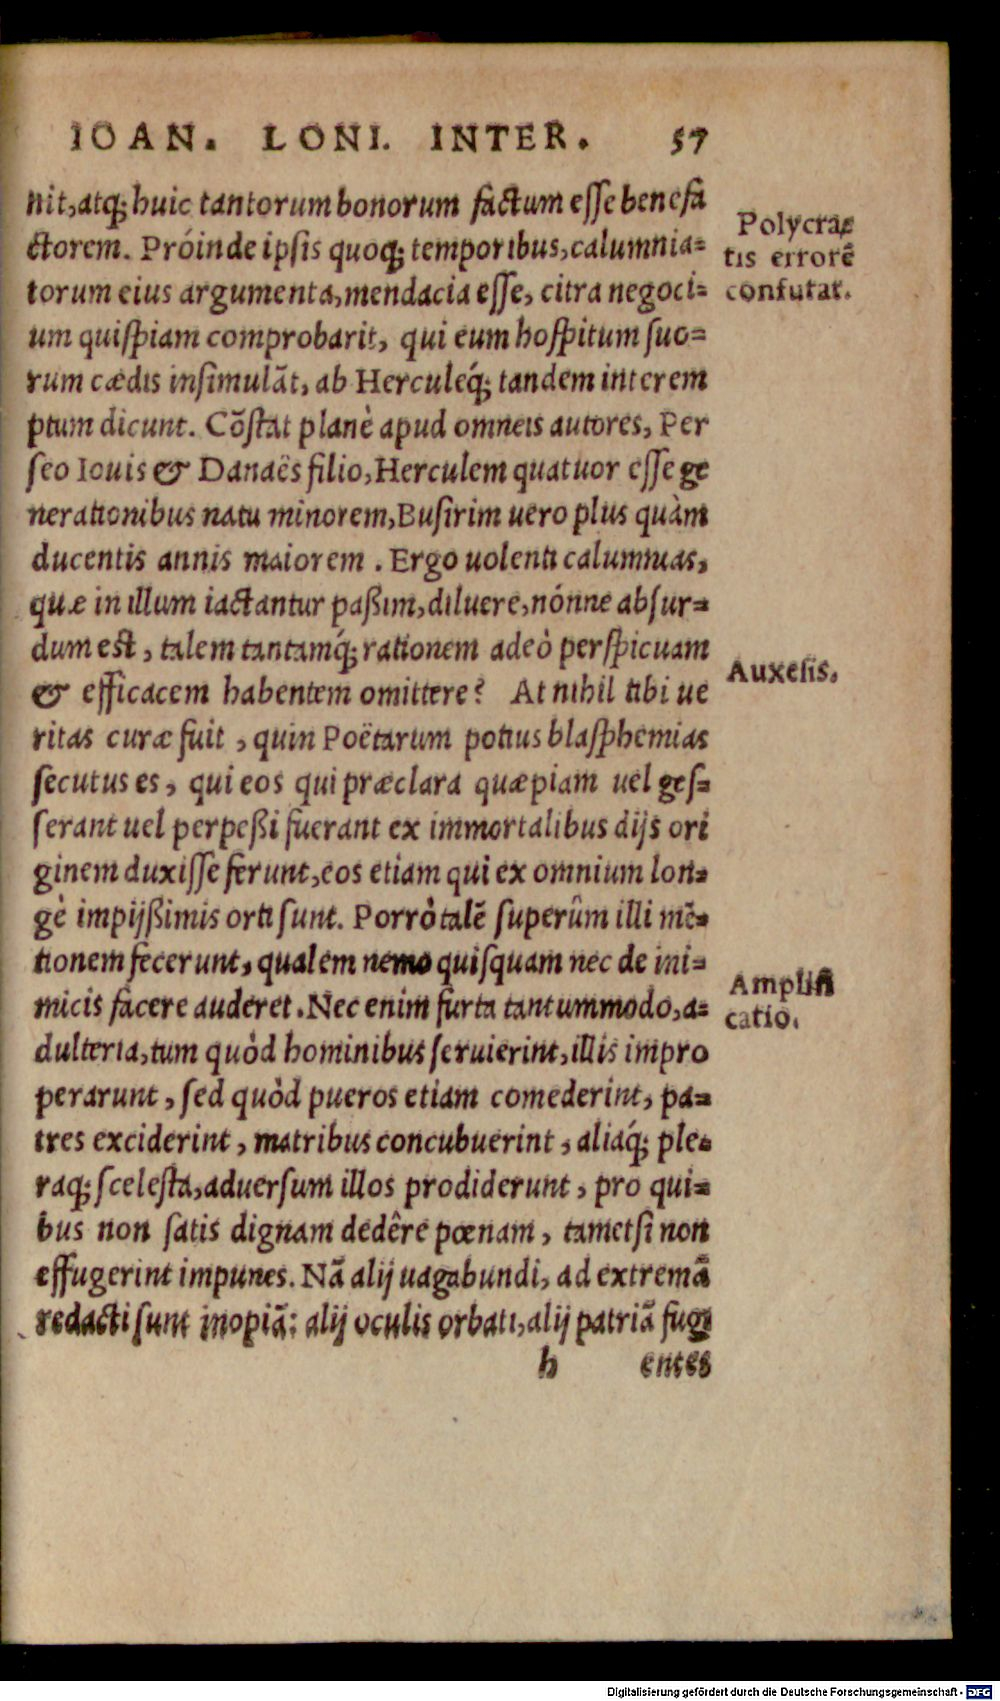 IOAN. LONI. INTER. 57
nit, atq; huic tantorum bonorum factum esse benefa
ctorem. Próinde ipsis quoq; temporibus, calumnia=
torum eius argumenta, mendacia esse, citra negoci=
um quispiam comprobarit, qui eum hospitum suo=
rum cædis insimulãt, ab Herculeq́; tandem interem
ptum dicunt. Cõstat planè apud omneis autores, Per
seo Iouis & Danaës filio, Herculem quatuor esse ge
nerationibus natu minorem, Busirim uero plus quàm
ducentis annis maiorem. Ergo uolenti calumnias,
quæ in illum iactantur paßim, diluere, nónne absur=
dum est, talem tantamq́; rationem adeò perspicuam
& efficacem habentem omittere? At nihil tibi ue
ritas curæ fuit, quin Poëtarum potius blasphemias
secutus es, qui eos qui præclara quæpiam uel ges=
serant uel perpeßi fuerant ex immortalibus dijs ori
ginem duxisse ferunt, eos etiam qui ex omnium lon=
gè impijßimis orti sunt. Porrò talẽ superûm illi mẽ=
tionem fecerunt, qualem nemo quisquam nec de ini=
micis facere auderet. Nec enim furta tantummodo, a=
dulteria, tum quòd hominibus seruierint, illis impro
perarunt, sed quòd pueros etiam comederint, pa=
tres exciderint, matribus concubuerint, aliaq́; ple=
raq; scelesta, aduersum illos prodiderunt, pro qui=
bus non satis dignam dedêre pœnam, tametsi non
effugerint impunes. Nã alij uagabundi, ad extremã
redacti sunt inopiã: alij oculis orbati, alij patriã fugi
h entes
Polycra=
tis errorẽ
confutat.
Auxesis.
Amplifi
catio.
Digitalisierung gefördert durch die Deutsche Forschungsgemeinschaft - DFG